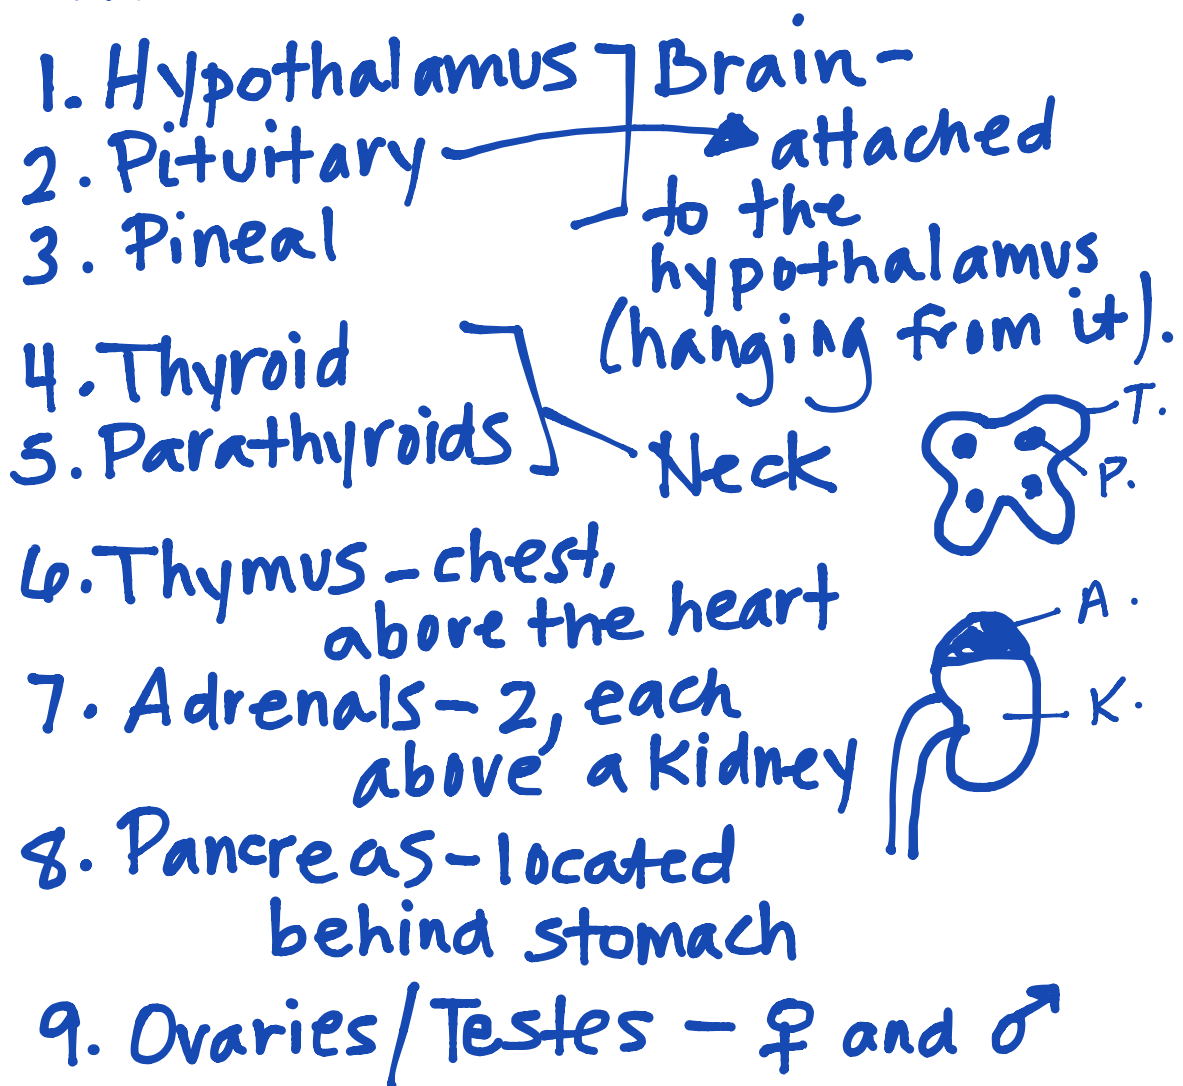 1. Hypothalamus
Brain-
2. Pituitary
attached
to the
hypothalamus
(hanging from it).
3. Pineal
4. Thyroid
5. Parathyroids
Neck
T.
P.
6. Thymus - chest,
above the heart
7. Adrenals - 2, each
above a kidney
A.
K.
8. Pancreas - located
behind stomach
9. Ovaries/Testes - ♀ and ♂